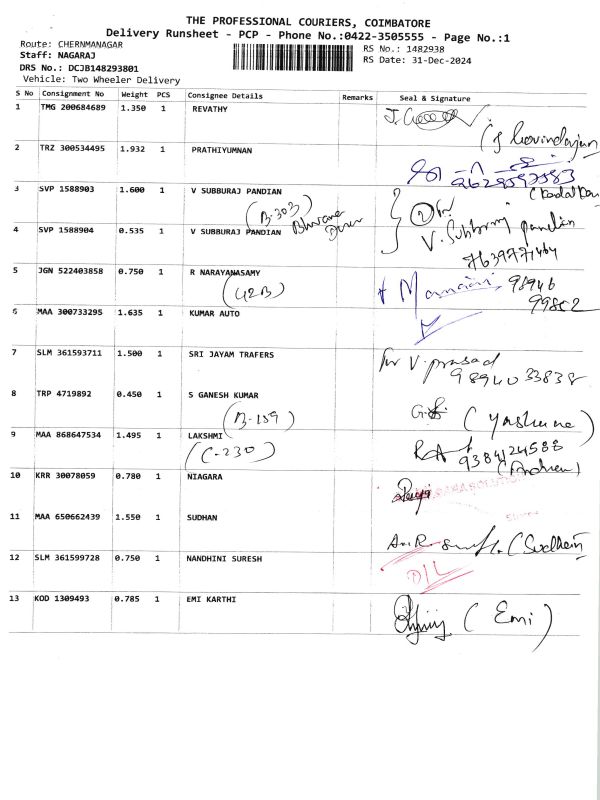 THE PROFESSIONAL COURIERS, COIMBATORE
Delivery Runsheet - PCP - Phone No.:0422-3505555 - Page No.:1
Route: CHERNMANAGAR RS No.: 1482938
Staff: NAGARAJ RS Date: 31-Dec-2024
DRS No.: DCJB148293801
Vehicle: Two Wheeler Delivery
S No Consignment No Weight PCS Consignee Details Remarks Seal & Signature
1 TMG 200684689 1.350 1 REVATHY
2 TRZ 300534495 1.932 1 PRATHIYUMNAN
3 SVP 1588903 1.600 1 V SUBBURAJ PANDIAN
(B-303)
4 SVP 1588904 0.535 1 V SUBBURAJ PANDIAN V. Subburaj pandian
7639771464
5 JGN 522403858 0.750 1 R NARAYANASAMY
(42B)
6 MAA 300733295 1.635 1 KUMAR AUTO
7 SLM 361593711 1.500 1 SRI JAYAM TRAFERS for V. prasad
9894033838
8 TRP 4719892 0.450 1 S GANESH KUMAR
(B-159)
9 MAA 868647534 1.495 1 LAKSHMI
(C-230) 9384124588
10 KRR 30078059 0.780 1 NIAGARA
11 MAA 650662439 1.550 1 SUDHAN
12 SLM 361599728 0.750 1 NANDHINI SURESH D/L
13 KOD 1309493 0.785 1 EMI KARTHI (Emi)